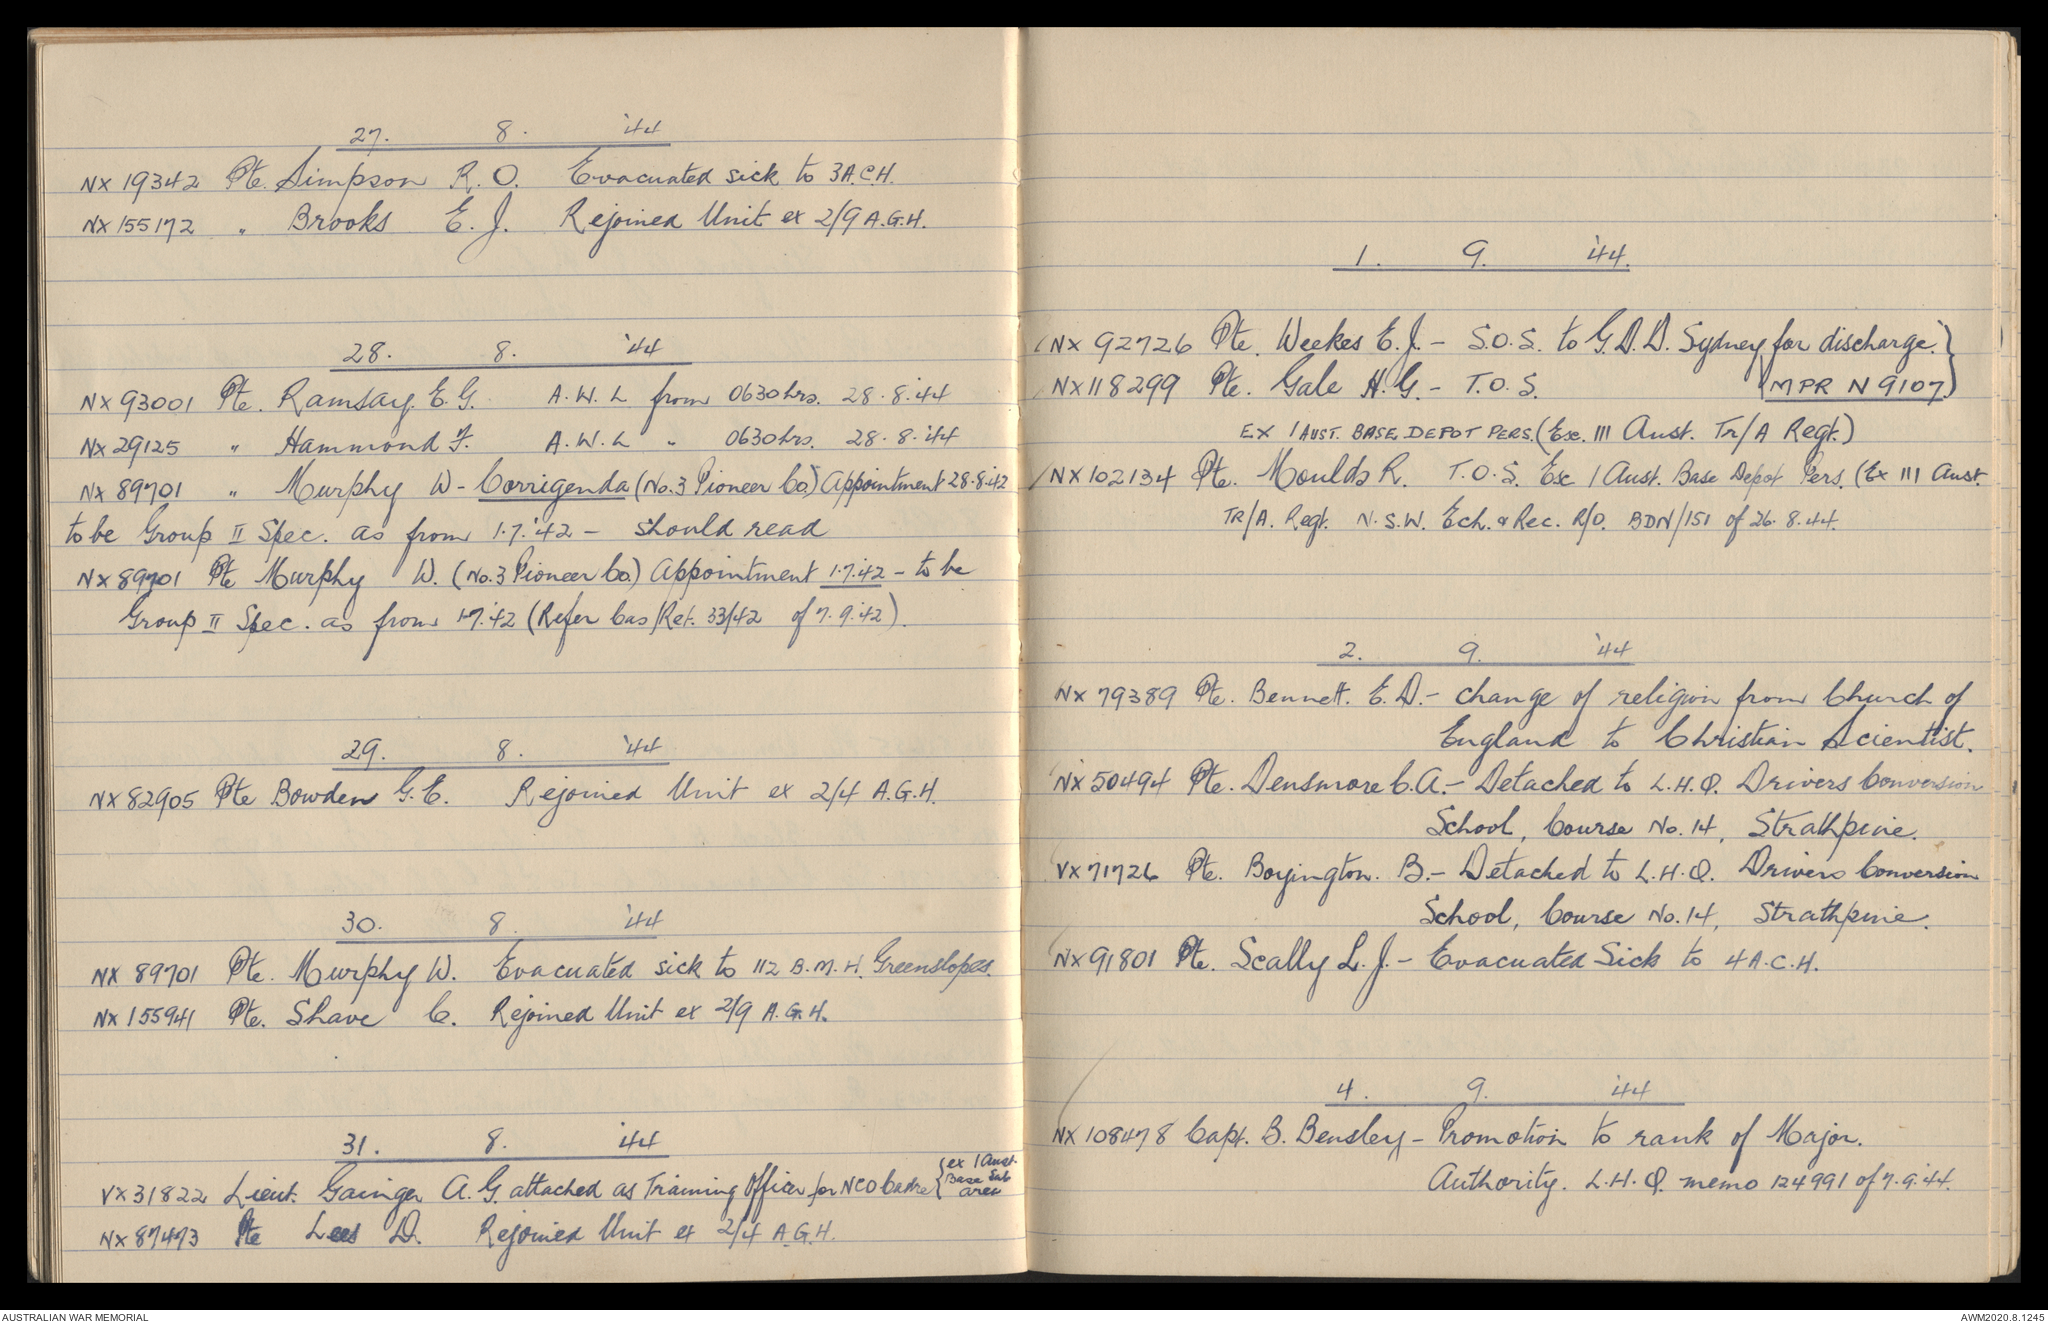 27. 8. '44
NX19342 Pte. Simpson R.O. Evacuated sick to 3A.C.H.
NX155172 " Brooks E.J. Rejoined Unit ex 2/9 A.G.H.
28. 8. '44
NX93001 Pte. Ramsay. E.G. A.W.L from 0630hrs. 28.8.'44
NX29125 " Hammond F. A.W.L " 0630hrs. 28.8.'44
NX89701 " Murphy W - Corrigenda (No.3 Pioneer Co.) Appointment 28.8.'42
to be Group II Spec. as from 1.7.'42 - should read
NX89701 Pte Murphy W. (No.3 Pioneer Co.) Appointment 1.7.'42 - to be
Group II Spec. as from 1.7.'42 (Refer Cas/Ret. 33/42 of 7.9.'42).
29. 8. '44
NX82905 Pte Bowden G.E. Rejoined Unit ex 2/4 A.G.H.
30. 8. '44
NX89701 Pte. Murphy W. Evacuated sick to 112 B.M.H. Greenslopes.
NX155941 Pte. Shave C. Rejoined Unit ex 2/9 A.G.H.
31. 8. '44
VX31822 Lieut. Gainger A.G. attached as Training Officer for NCO Cadre {ex 1 Aust.
Base Sub
area
NX87473 Pte Lees D. Rejoined Unit ex 2/4 A.G.H.
1. 9. '44.
NX92726 Pte. Weekes E.J. - S.O.S. to G.D.D. Sydney for discharge.}
NX118299 Pte. Gale H.G. - T.O.S. (MPR N9107)
EX 1 AUST. BASE DEPOT PERS. (Esc. 111 Aust. Tr/A Regt.)
NX102134 Pte. Moulds R. T.O.S. Esc 1 Aust. Base Depot Pers. (Ex 111 Aust.
TR/A. Regt. N.S.W. Ech. & Rec. R/O. BDN/151 of 26.8.44.
2. 9. '44
NX79389 Pte. Bennett. E.D. - change of religion from Church of
England to Christian Scientist.
NX50494 Pte. Densmore C.A. - Detached to L.H.Q. Drivers Conversion
School, Course No.14, Strathpine.
VX71726 Pte. Boyington. B. - Detached to L.H.Q. Drivers Conversion
School, Course No.14, Strathpine.
NX91801 Pte. Scally L.J. - Evacuated Sick to 4A.C.H.
4. 9. '44
NX108478 Capt. B. Bensley - Promotion to rank of Major.
Authority. L.H.Q. memo 124991 of 7.9.'44.
AUSTRALIAN WAR MEMORIAL
AWM2020.8.1245